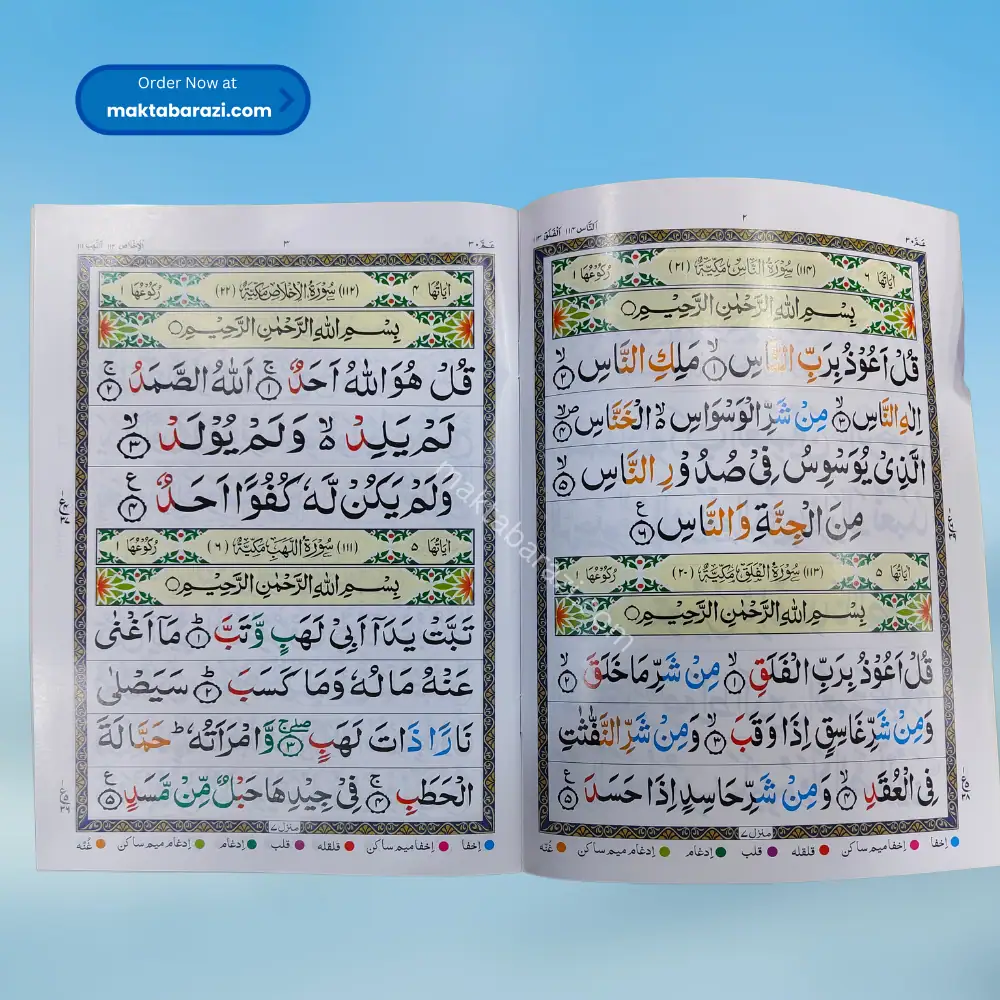 Order Now at
maktabarazi.com
عَمَّ ٣٠
٢
اَلنَّاس ١١٤ اَلْفَلَق ١١٣
اٰيَاتُهَا ٦
(١١٤) سُوْرَةُ النَّاسِ مَكِّيَّةٌ (٢١)
رُكُوْعُهَا ١
بِسْمِ اللّٰهِ الرَّحْمٰنِ الرَّحِيْمِ
قُلْ اَعُوْذُ بِرَبِّ النَّاسِ ۙ﴿١﴾ مَلِكِ النَّاسِ ۙ﴿٢﴾
اِلٰهِ النَّاسِ ۙ﴿٣﴾ مِنْ شَرِّ الْوَسْوَاسِ ۙ الْخَنَّاسِ ۙ﴿٤﴾
الَّذِيْ يُوَسْوِسُ فِيْ صُدُوْرِ النَّاسِ ۙ﴿٥﴾
مِنَ الْجِنَّةِ وَالنَّاسِ ﴿٦﴾ ع
اٰيَاتُهَا ٥
(١١٣) سُوْرَةُ الْفَلَقِ مَكِّيَّةٌ (٢٠)
رُكُوْعُهَا ١
بِسْمِ اللّٰهِ الرَّحْمٰنِ الرَّحِيْمِ
قُلْ اَعُوْذُ بِرَبِّ الْفَلَقِ ۙ﴿١﴾ مِنْ شَرِّ مَا خَلَقَ ۙ﴿٢﴾
وَمِنْ شَرِّ غَاسِقٍ اِذَا وَقَبَ ۙ﴿٣﴾ وَمِنْ شَرِّ النَّفّٰثٰتِ
فِي الْعُقَدِ ۙ﴿٤﴾ وَمِنْ شَرِّ حَاسِدٍ اِذَا حَسَدَ ﴿٥﴾ ع
منزل ٧
اِخفا اِخفا میم ساکن قلقله قلب اِدغام اِدغام میم ساکن غُنّه
عَمَّ ٣٠
٣
اَلْاِخْلَاص ١١٢ اَللَّهَب ١١١
اٰيَاتُهَا ٤
(١١٢) سُوْرَةُ الْاِخْلَاصِ مَكِّيَّةٌ (٢٢)
رُكُوْعُهَا ١
بِسْمِ اللّٰهِ الرَّحْمٰنِ الرَّحِيْمِ
قُلْ هُوَ اللّٰهُ اَحَدٌ ۚ﴿١﴾ اَللّٰهُ الصَّمَدُ ۚ﴿٢﴾
لَمْ يَلِدْ ۙ وَلَمْ يُوْلَدْ ۙ﴿٣﴾
وَلَمْ يَكُنْ لَّهٗ كُفُوًا اَحَدٌ ﴿٤﴾ ع
اٰيَاتُهَا ٥
(١١١) سُوْرَةُ اللَّهَبِ مَكِّيَّةٌ (٦)
رُكُوْعُهَا ١
بِسْمِ اللّٰهِ الرَّحْمٰنِ الرَّحِيْمِ
تَبَّتْ يَدَاۤ اَبِيْ لَهَبٍ وَّتَبَّ ؕ﴿١﴾ مَاۤ اَغْنٰى
عَنْهُ مَالُهٗ وَمَا كَسَبَ ؕ﴿٢﴾ سَيَصْلٰى
نَارًا ذَاتَ لَهَبٍ ۖۚ﴿٣﴾ وَّامْرَاَتُهٗ ؕ حَمَّالَةَ
الْحَطَبِ ۚ﴿٤﴾ فِيْ جِيْدِهَا حَبْلٌ مِّنْ مَّسَدٍ ﴿٥﴾ ع
منزل ٧
اِخفا اِخفا میم ساکن قلقله قلب اِدغام اِدغام میم ساکن غُنّه
maktabarazi.com